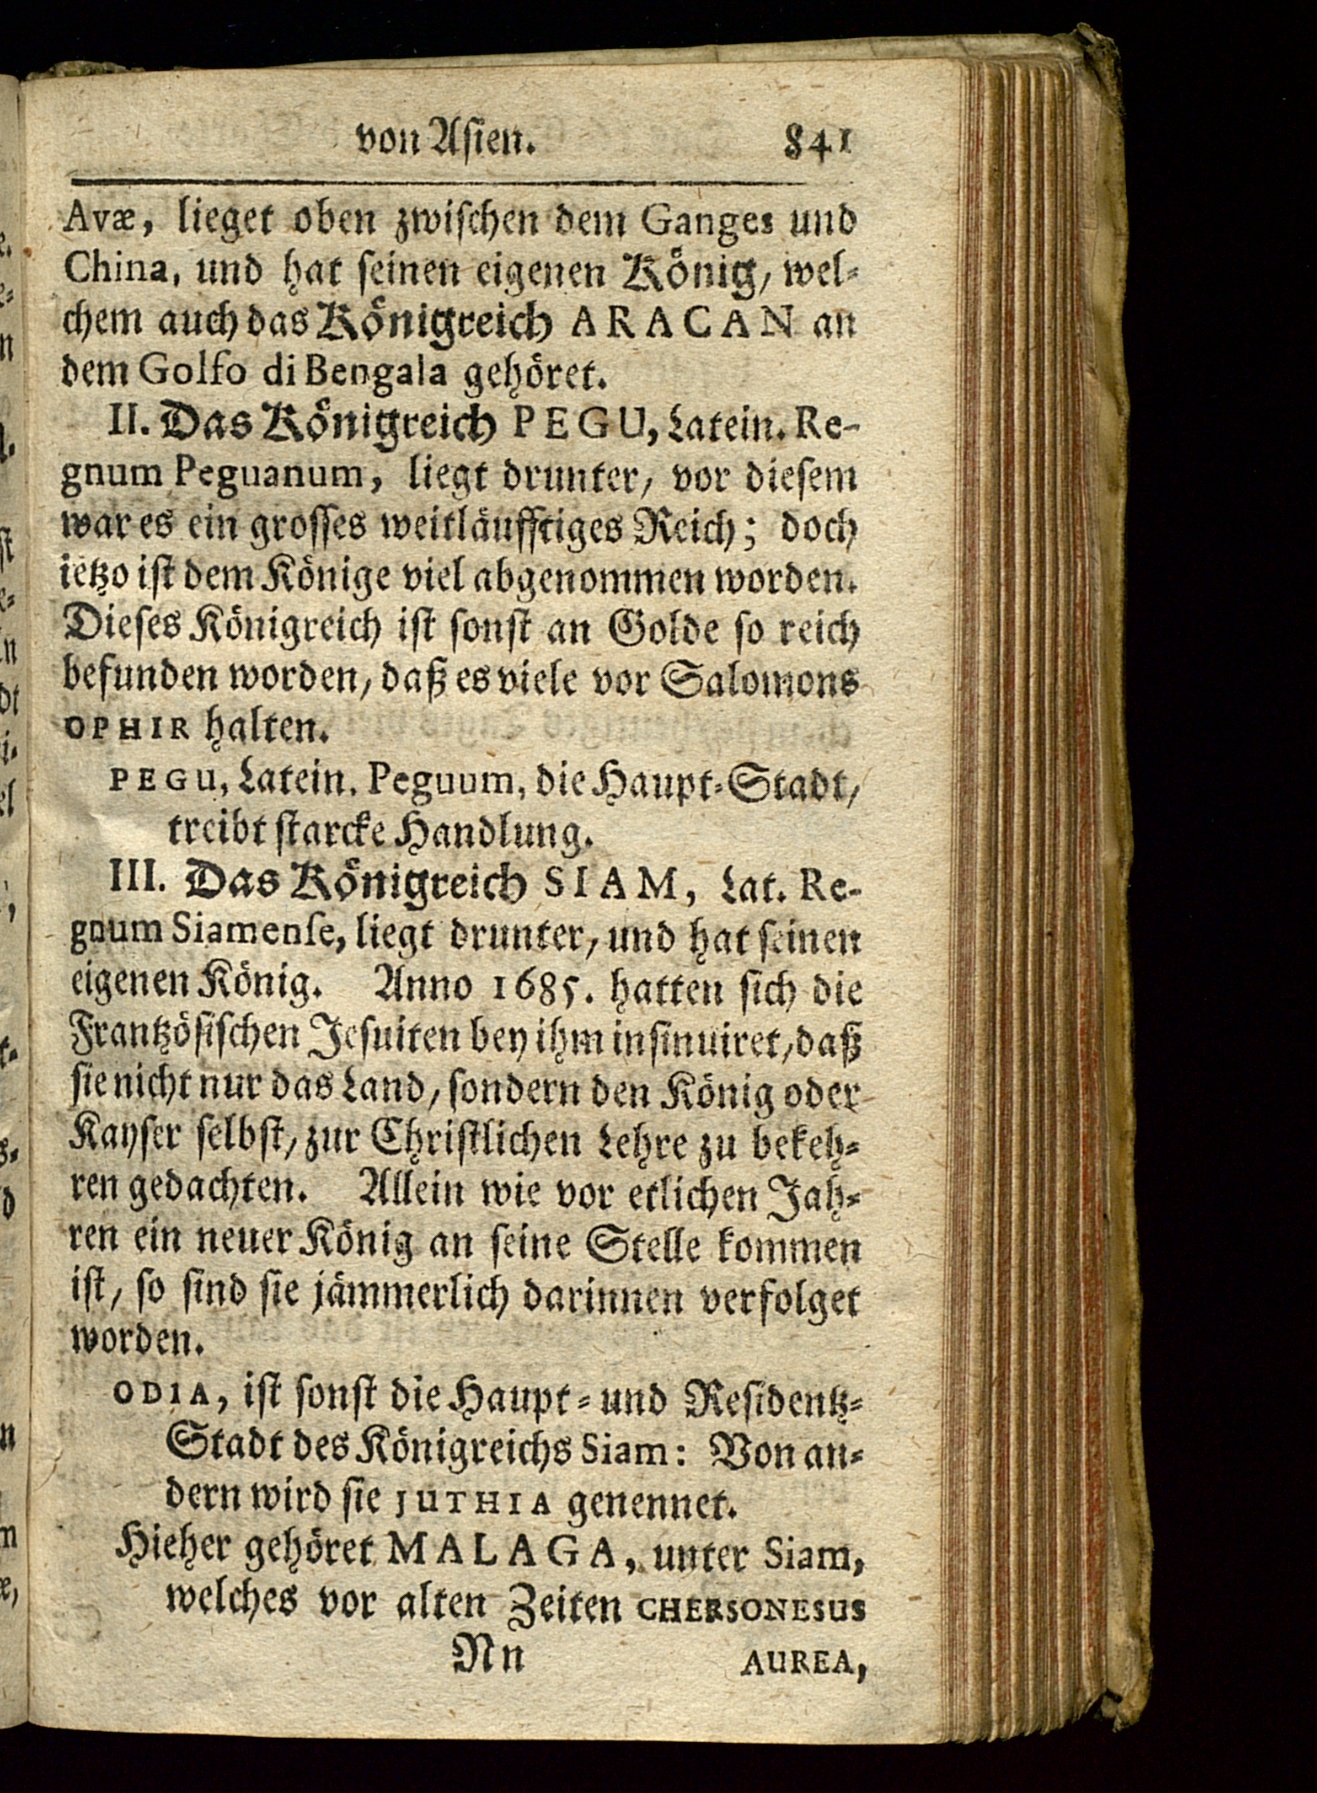 von Asien. 841
Avæ, lieget oben zwischen dem Ganges und
China, und hat seinen eigenen König, wel-
chem auch das Königreich ARACAN an
dem Golfo di Bengala gehöret.
II. Das Königreich PEGU, Latein. Re-
gnum Peguanum, liegt drunter, vor diesem
war es ein grosses weitläufftiges Reich; doch
ietzo ist dem Könige viel abgenommen worden.
Dieses Königreich ist sonst an Golde so reich
befunden worden, daß es viele vor Salomons
OPHIR halten.
PEGU, Latein. Peguum, die Haupt-Stadt,
treibt starcke Handlung.
III. Das Königreich SIAM, Lat. Re-
gnum Siamense, liegt drunter, und hat seinen
eigenen König. Anno 1685. hatten sich die
Frantzösischen Jesuiten bey ihm insinuiret, daß
sie nicht nur das Land, sondern den König oder
Kayser selbst, zur Christlichen Lehre zu bekeh-
ren gedachten. Allein wie vor etlichen Jah-
ren ein neuer König an seine Stelle kommen
ist, so sind sie jämmerlich darinnen verfolget
worden.
ODIA, ist sonst die Haupt- und Residentz-
Stadt des Königreichs Siam: Von an-
dern wird sie JUTHIA genennet.
Hieher gehöret MALAGA, unter Siam,
welches vor alten Zeiten CHERSONESUS
Nn AUREA,